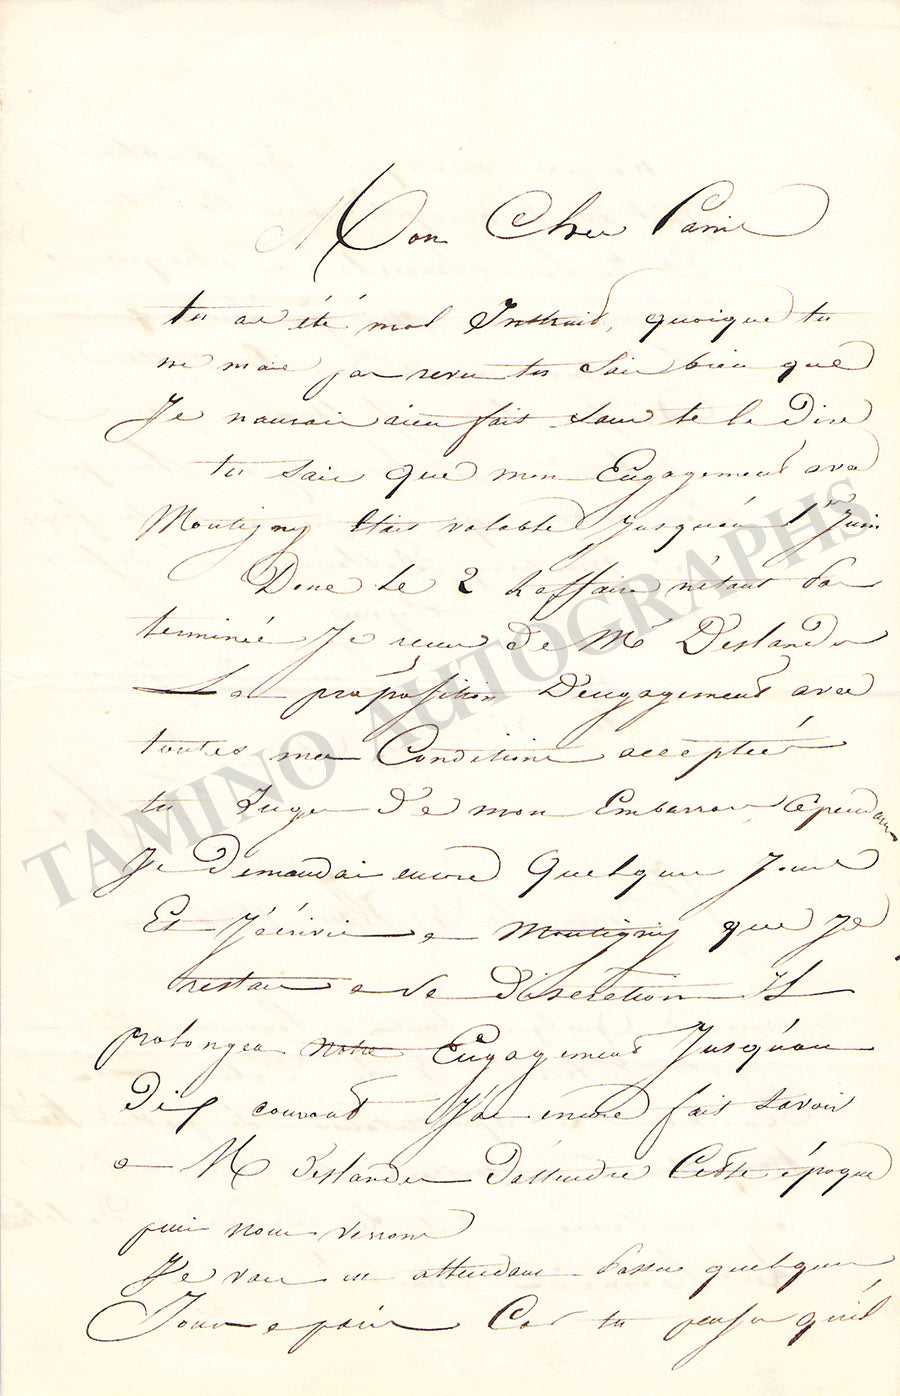 Mon Cher Parrin
tu as été mal Instruit, quoique tu
ne maie pas revu tu Sais bien que
Je nauvais rien fait Sans te le Dire
tu Sais que mon Engagement avec
Montigny Etais valable Jusquau 1er Juin
Donc le 2 l'affaire n'étant pas
terminée Je recus De Mr Deslandes
La proposition D'engagement avec
toutes mes Conditions acceptées
tu Juges De mon Embarras, Cependant
Je Demandai encore Quelques Jours
Et J'écrivis a Montigny que Je
restais a sa Discretion Il
prolongea notre Engagement Jusqu'au
Dix courant J'ai encore fait Savoir
a Mr Deslandes D'attendre Cette époque
puis nous verrons
Je vais en attendant Passer quelques
Jours a paris Car tu penses qu'il
TAMINO AUTOGRAPHS